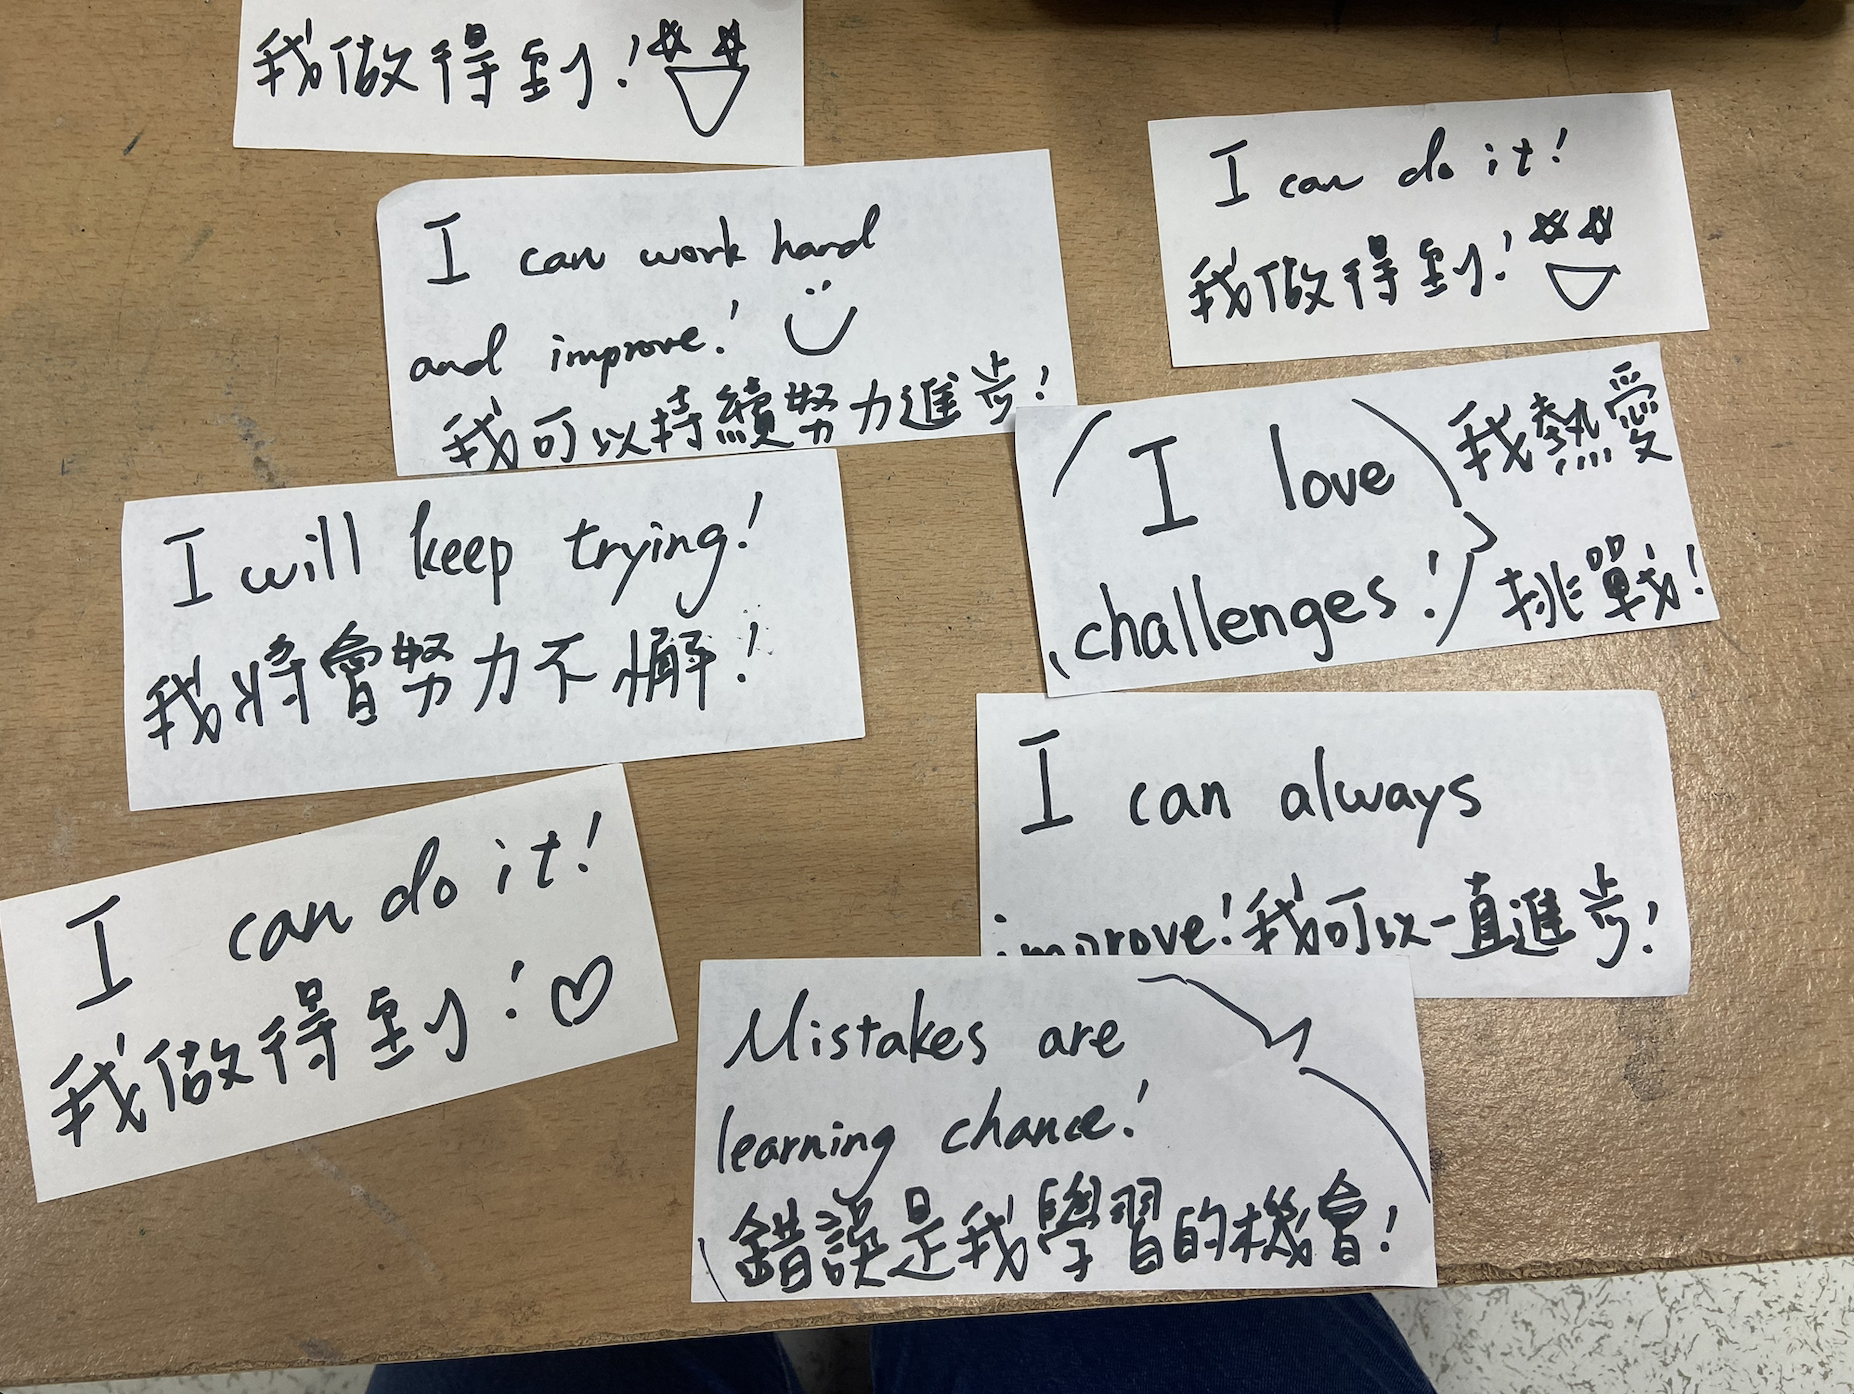 我做得到!
I can work hard
and improve!
我可以持續努力進步!
I can do it!
我做得到!
I love
challenges!
我熱愛
挑戰!
I will keep trying!
我將會努力不懈!
I can always
improve!我可以一直進步!
I can do it!
我做得到!
Mistakes are
learning chance!
錯誤是我學習的機會!